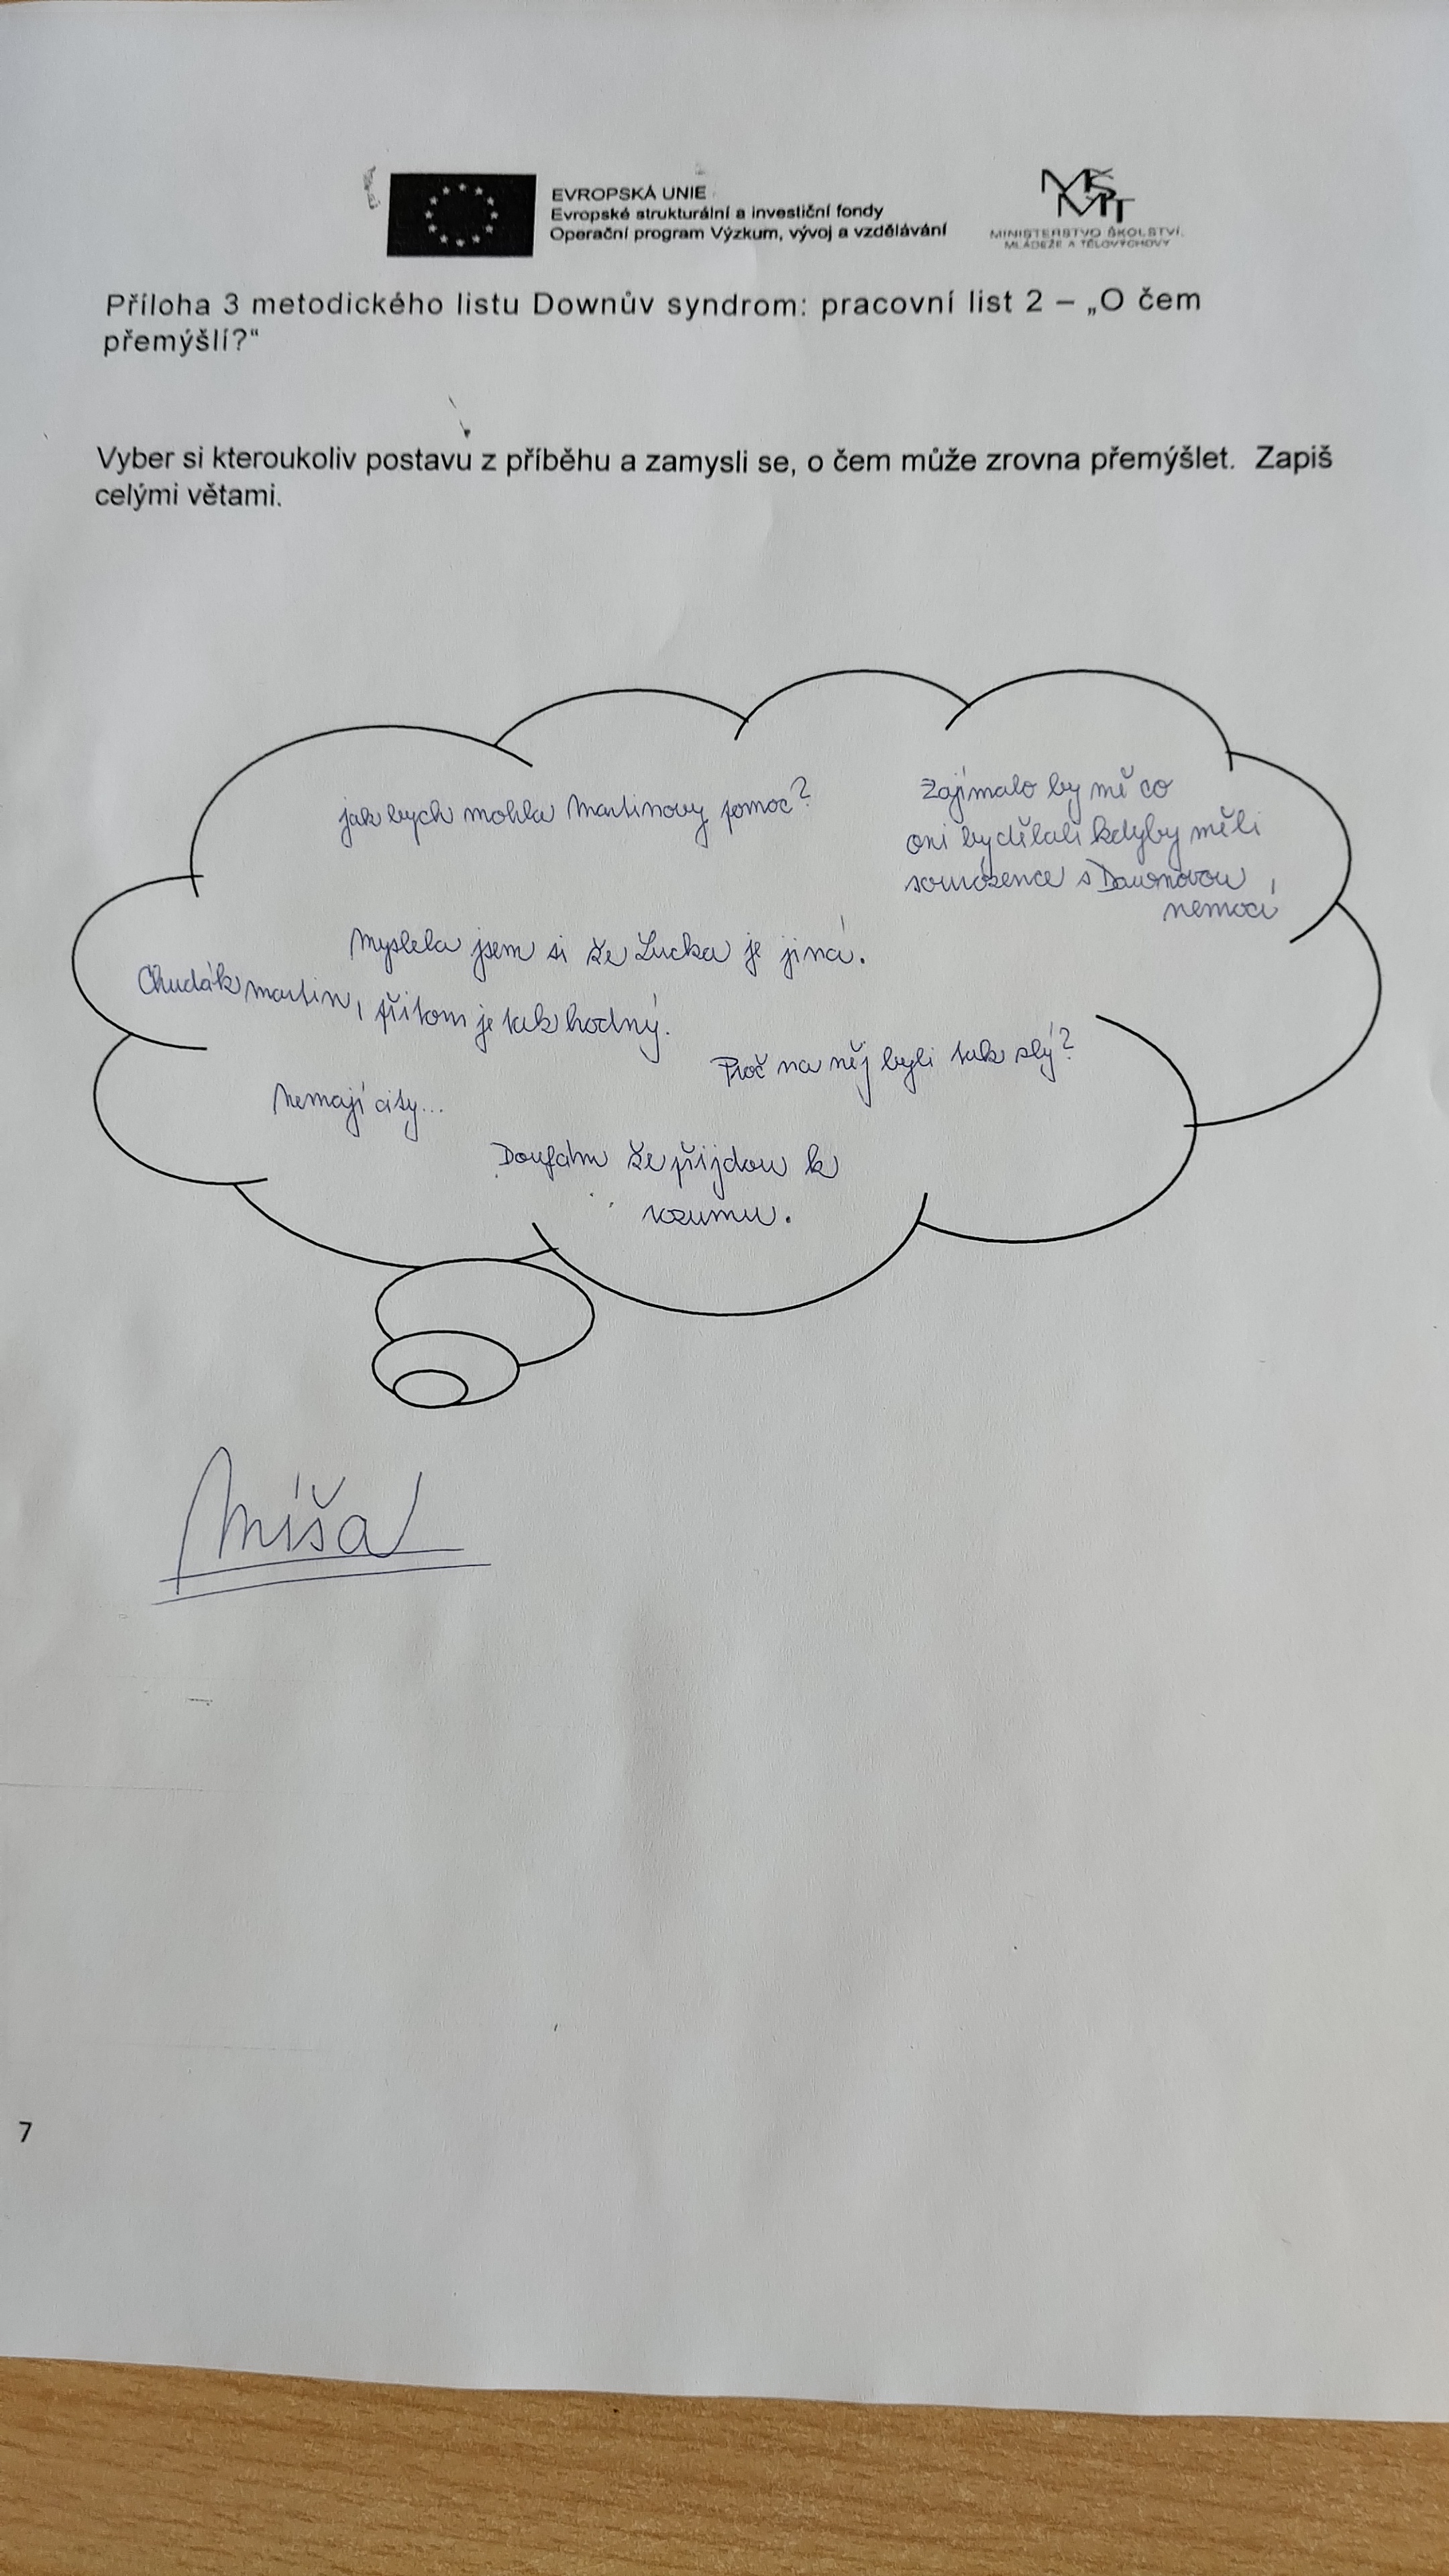 EVROPSKÁ UNIE
Evropské strukturální a investiční fondy
Operační program Výzkum, vývoj a vzdělávání
MŠMT
MINISTERSTVO ŠKOLSTVÍ,
MLÁDEŽE A TĚLOVÝCHOVY
Příloha 3 metodického listu Downův syndrom: pracovní list 2 – „O čem
přemýšlí?“
Vyber si kteroukoliv postavu z příběhu a zamysli se, o čem může zrovna přemýšlet. Zapiš
celými větami.
jak bych mohla Martinovy pomoc?
Zajímalo by mě co
oni by dělali kdyby měli
sourózence s Dawnovou
nemocí
Myslela jsem si že Lucka je jiná.
Chudák martin, přitom je tak hodný.
Proč na něj byli tak zlý?
Nemají city...
Doufám že přijdou k
rozumu.
Míša
7